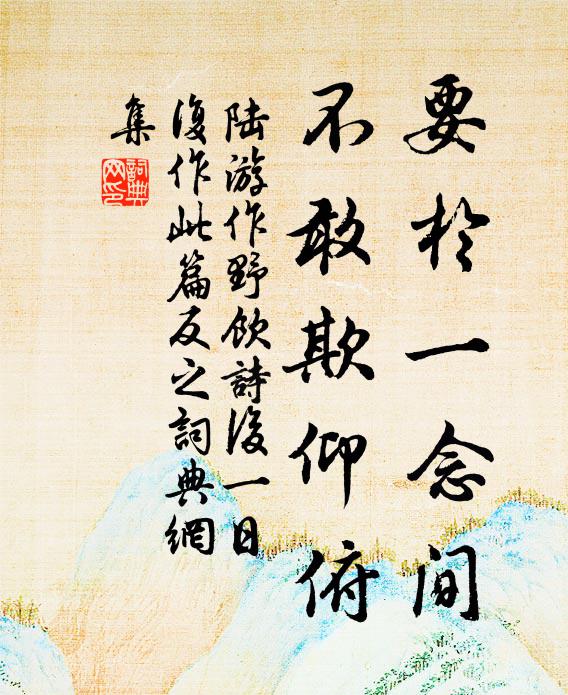 要於一念间
不敢欺仰俯
陆游作野飲詩後一日
復作此篇反之詞典網
集
詞典网印